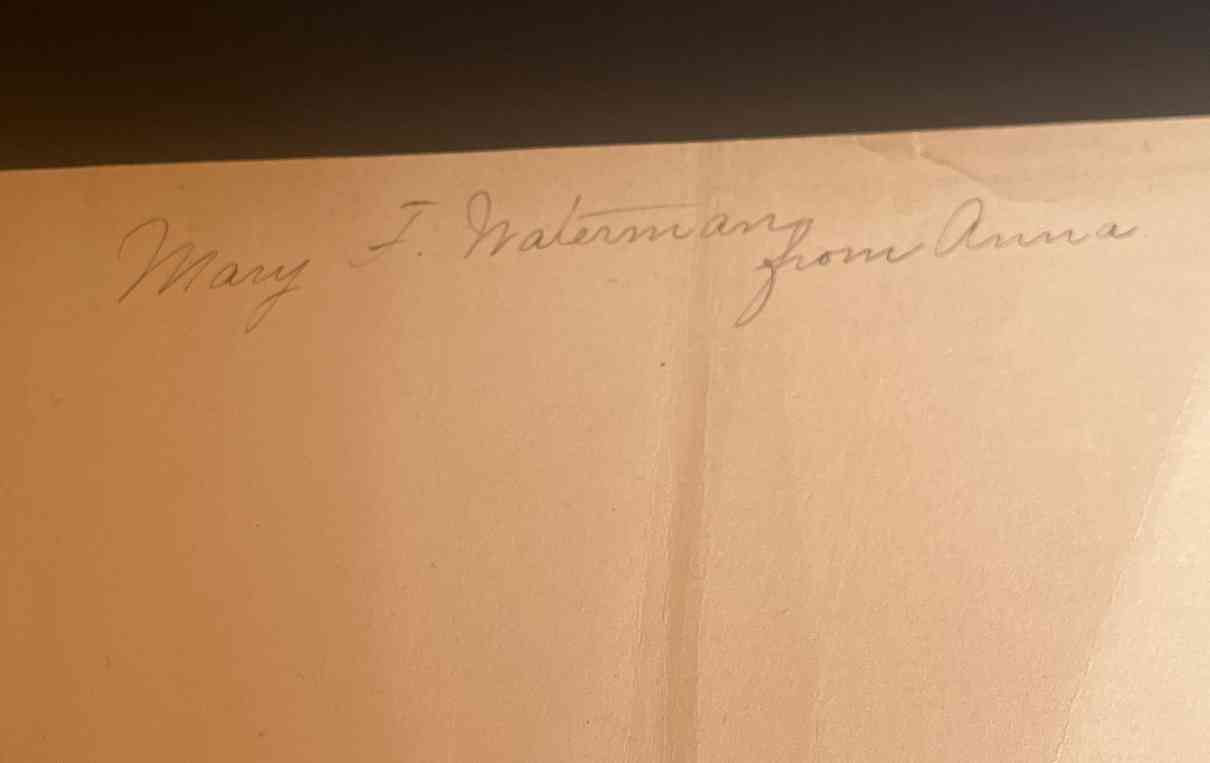 Mary I. Waterman
from Anna